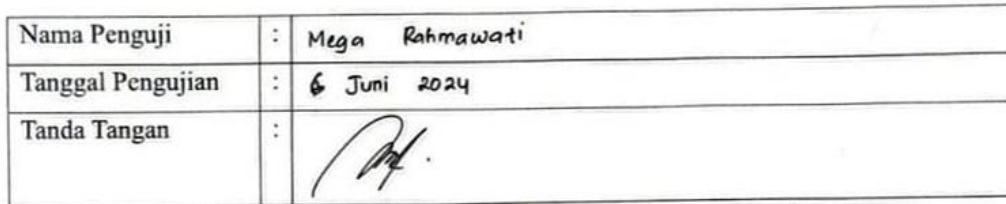 Nama Penguji : Mega Rahmawati
Tanggal Pengujian : 6 Juni 2024
Tanda Tangan :